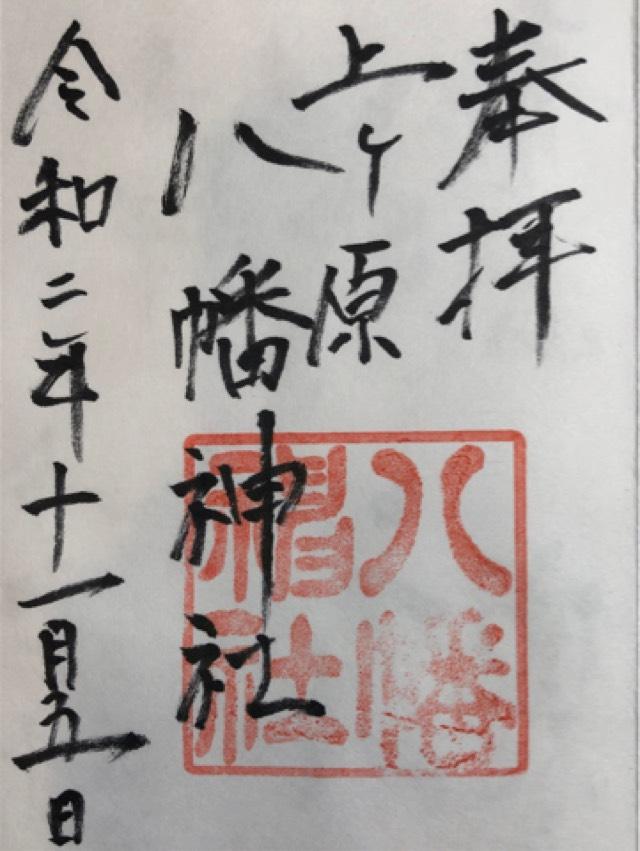 奉拝
上ヶ原
八幡神社
八幡
神社
令和二年十一月五日